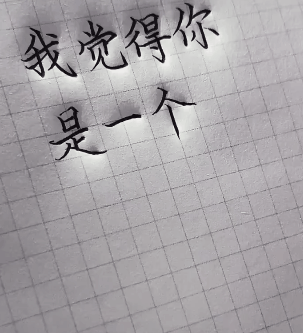 我觉得你
是一个